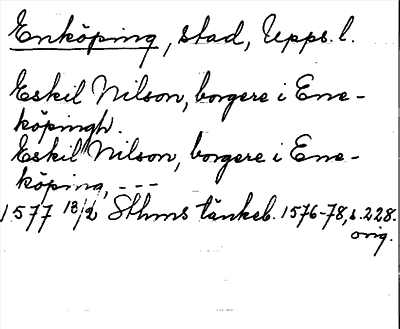 Enköping, stad, Upps. l.
Eskil Nilson, borgere i Ene-
köpingh.
Eskil Nilson, borgere i Ene-
köping, - - -
1577 18/2 Sthms tänkeb. 1576-78, s. 228.
orig.